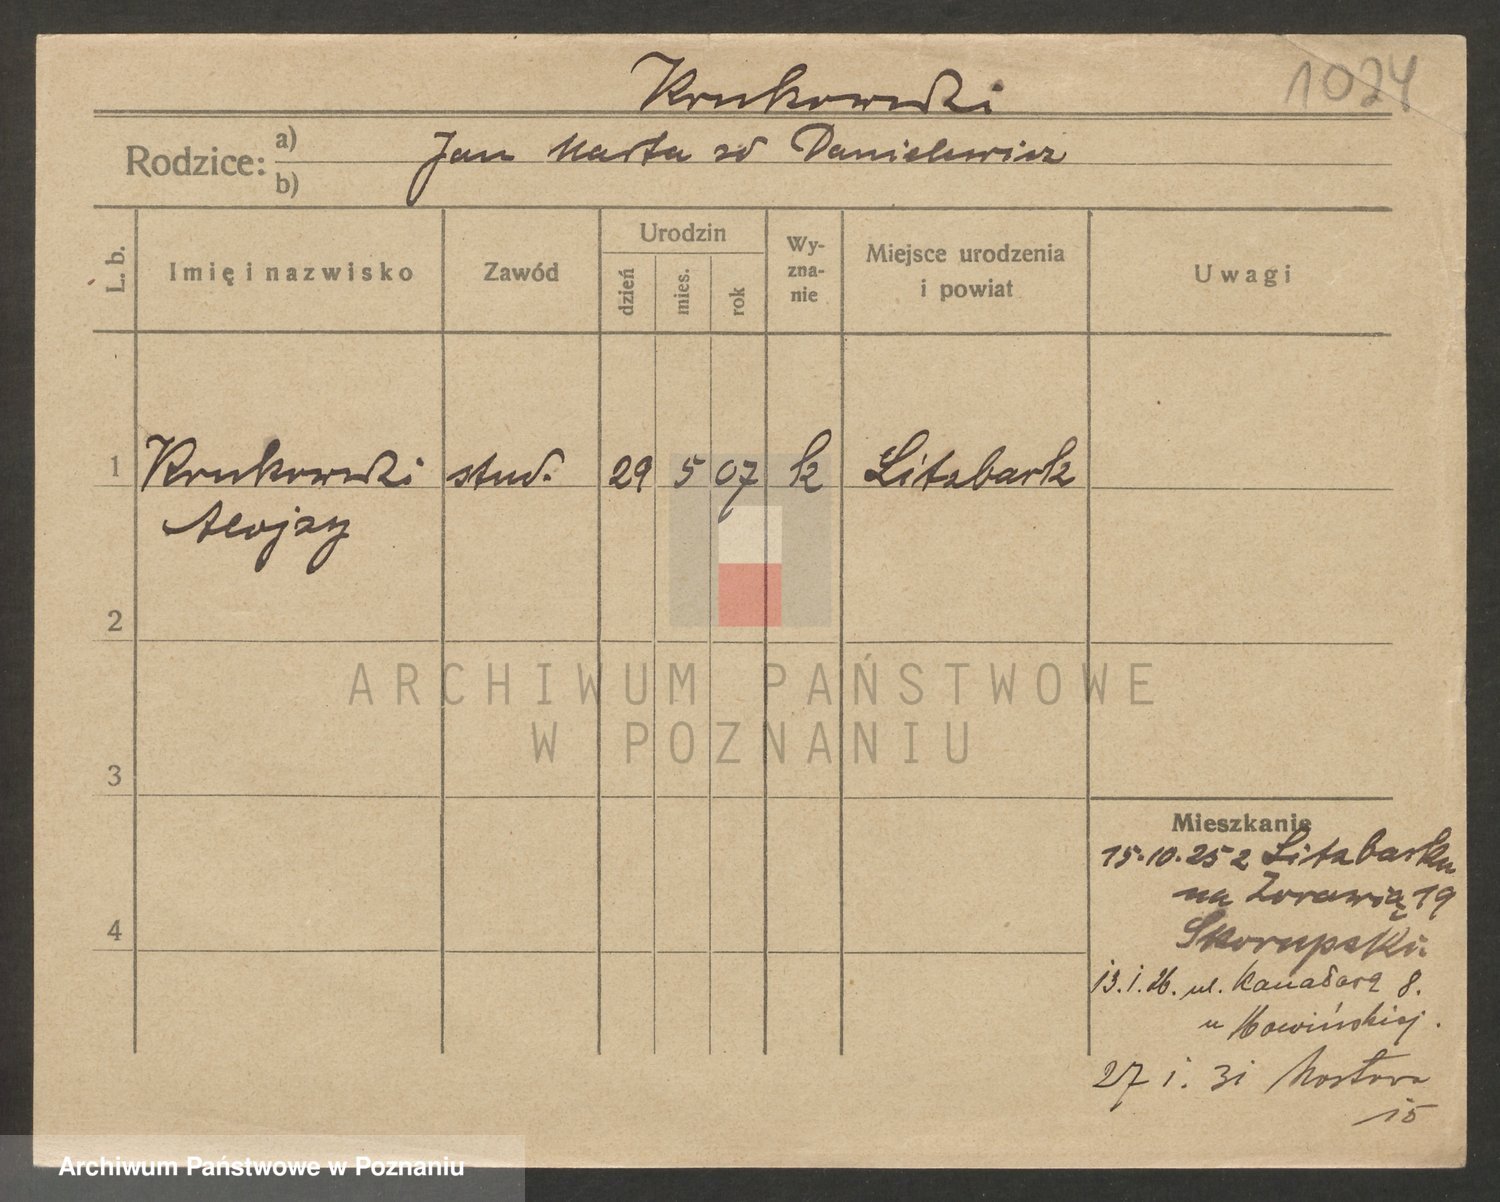 1024
Krukowski
Rodzice: a) b)
Jan Marta zd Danielewicz
L. b.
Imię i nazwisko
Zawód
Urodzin
dzień
mies.
rok
Wy-
zna-
nie
Miejsce urodzenia
i powiat
Uwagi
1 Krukowski stud. 29 5 07 k Litzbark
Alojzy
2
3
4
Mieszkanie
15.10.25 z Litzbarku
na Żorawią 19
Skorupski
13.1.26. ul. Kanałowa 8.
u
27 i. 31 Mostowa
15
ARCHIWUM PAŃSTWOWE
W POZNANIU
Archiwum Państwowe w Poznaniu